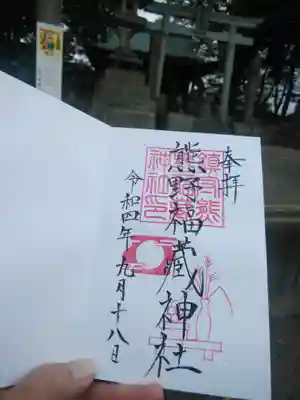 奉拝
熊野福蔵神社
令和四年九月十八日